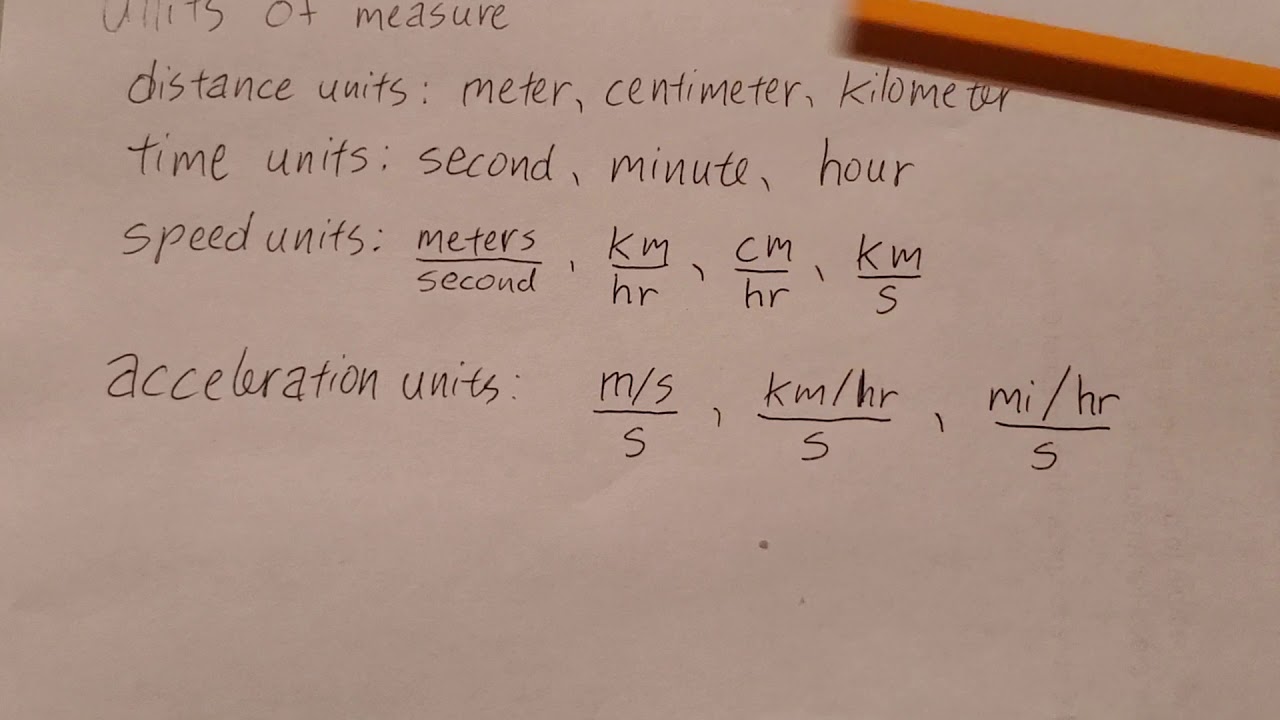 units of measure
distance units: meter, centimeter, kilometer
time units: second, minute, hour
speed units: meters/second, km/hr, cm/hr, km/s
acceleration units: m/s/s, km/hr/s, mi/hr/s